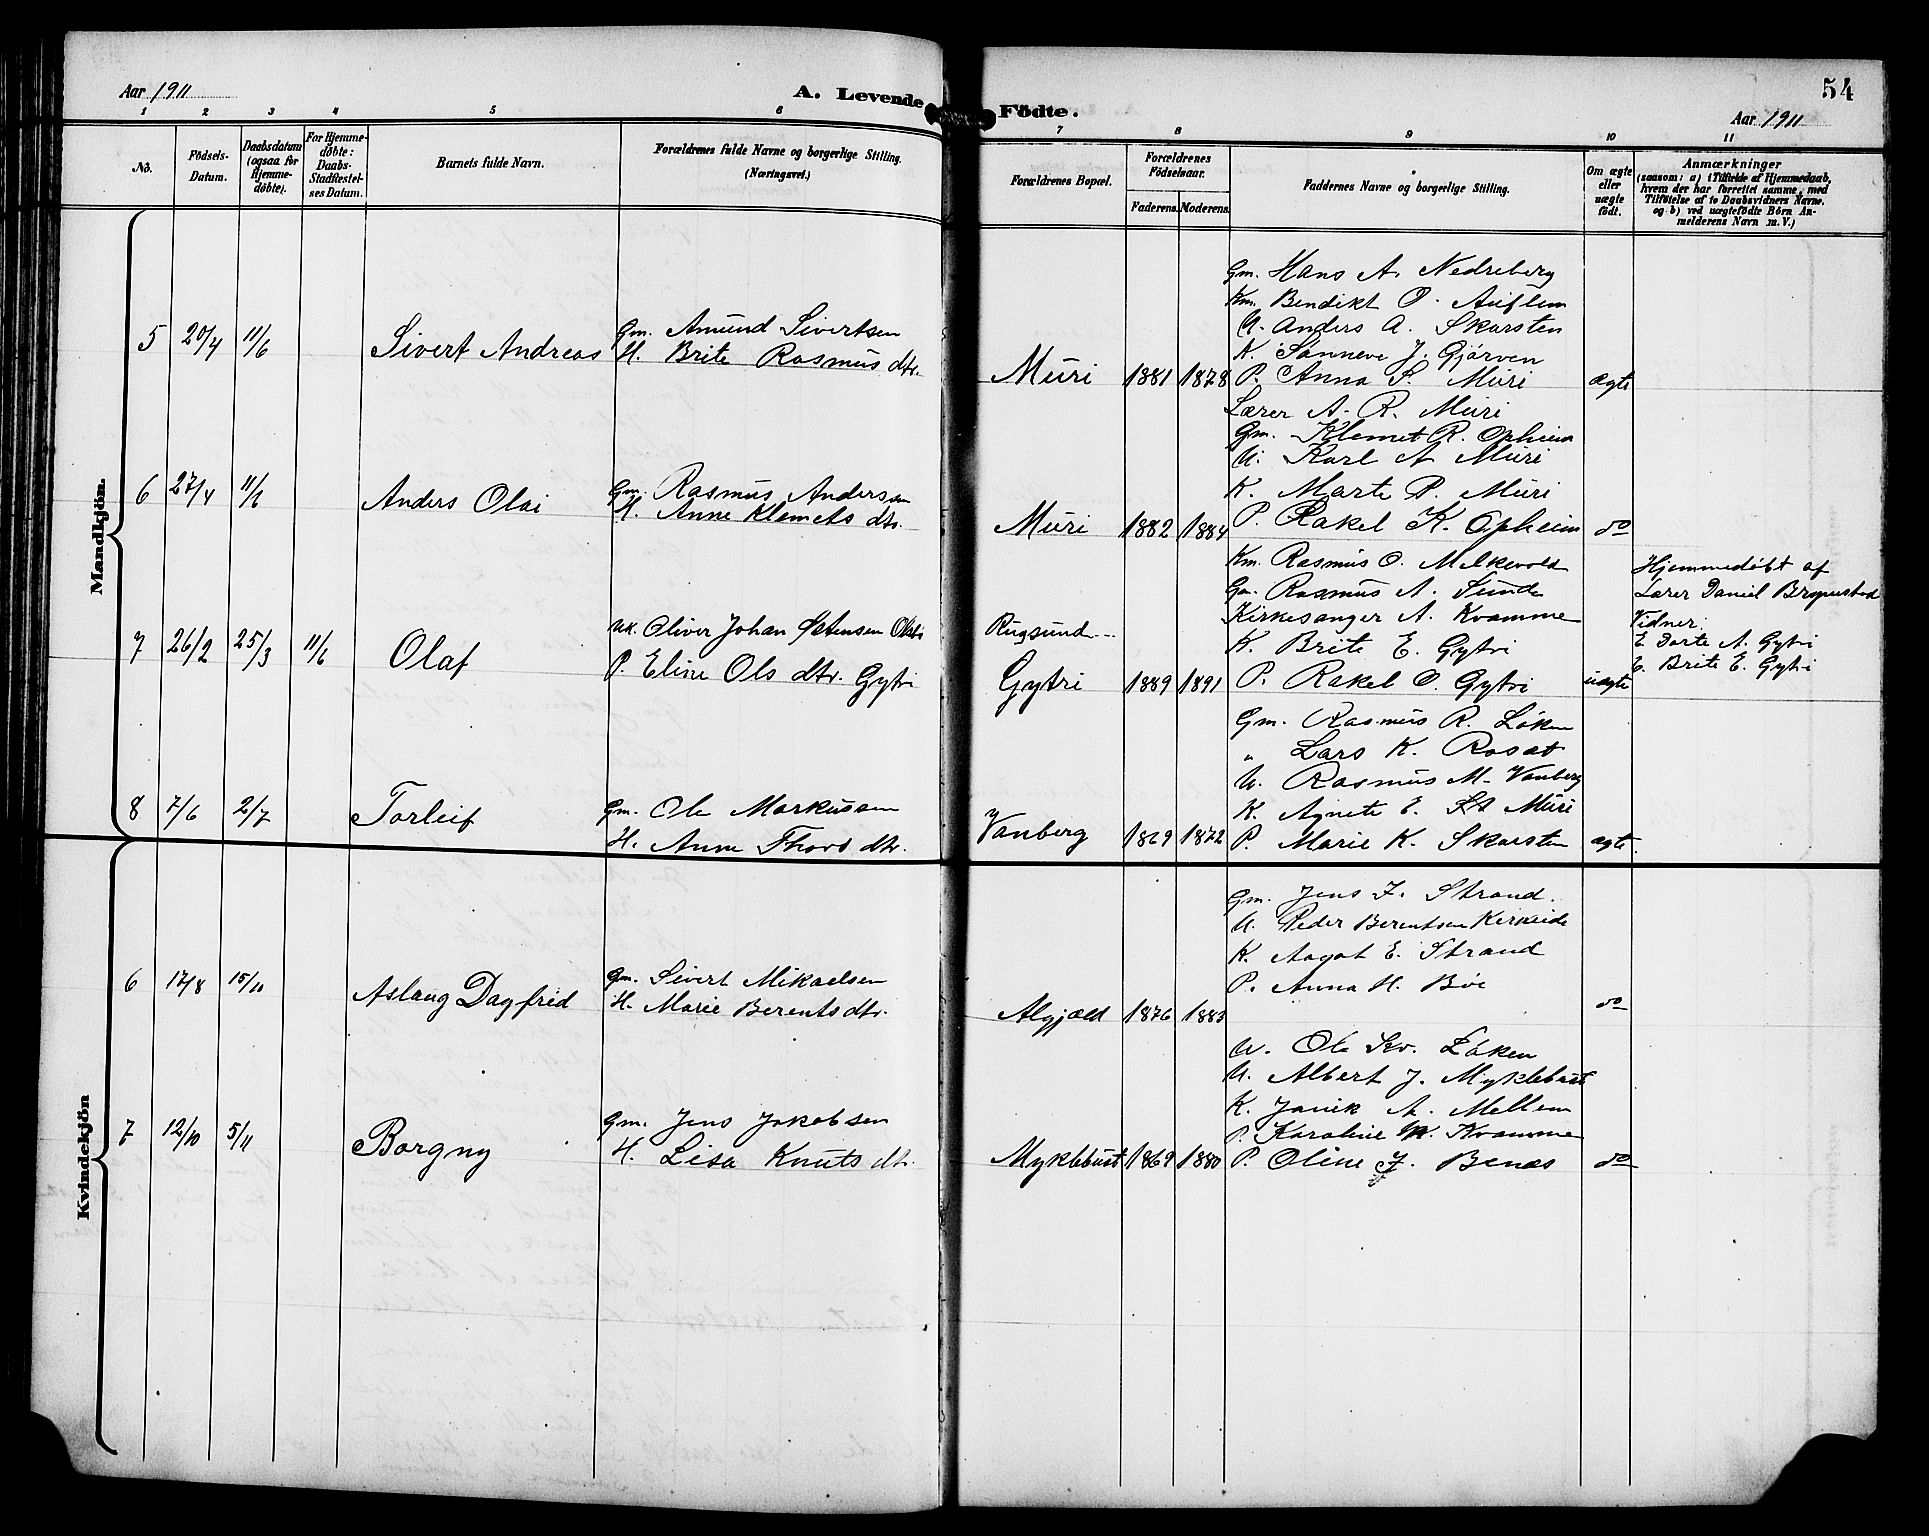 Aar 1911
A. Levende
Födte.
54
Aar 1911
1 2 3 4 5 6 7 8 9 10 11
No.
Födsels-Datum.
Daabsdatum (ogsaa for Hjemme-døbte).
For Hjemme-døbte: Daabs-Stadfæstel-ses Datum.
Barnets fulde Navn.
Forældrenes fulde Navne og borgerlige Stilling. (Næringsvei.)
Forældrenes Bopæl.
Forældrenes Födselsaar.
Faderens. Moderens.
Faddernes Navne og borgerlige Stilling.
Om ægte eller uægte födt.
Anmærkninger
(saasom: a) i Tilfælde af Hjemmedaab,
hvem der har forrettet samme, med
Tilföielse af to Daabsvidners Navne,
og b) ved uægtefödte Börn An-
melderens Navn m. V.)
Mandkjön.
5 20/4 11/6 Sivert Andreas
Gm. Amund Sivertsen
H. Brite Rasmus dtr.
Muri 1881 1878
Gm. Hans A. Nedreberg
Km. Bendikt O. Auflem
U. Anders A. Skarsten
K. Sanneve J. Gjørven
P. Anna S. Muri
ægte
6 27/4 11/6 Anders Olai
Gm. Rasmus Anderssen
H. Anne Klemets dtr.
Muri 1882 1884
Lærer A. R. Muri
Gm. Klemet R. Opheim
U. Karl A Muri
K. Marte P. Muri
P. Rakel K. Opheim
do
7 26/2 25/3 11/6 Olaf
Uk. Oliver Johan Østensen
P. Eline Ols dtr. Gytri
Rugsund
Gytri 1889 1891
Km. Rasmus O. Melkevold
Gm. Rasmus A. Sunde
Kirkesanger A. Kvamme
K. Brite E. Gytri
P. Rakel O. Gytri
uægte
Hjemmedøbt af
Lærer Daniel
Vidner:
E. Dorte A. Gytri
Brite E. Gytri
8 7/6 2/7 Torleif
Gm. Ole Markussen
H. Anne Thors dtr.
Vanberg 1869 1872
Gm. Rasmus R. Løken
" Lars K. Rosæt
U. Rasmus M. Vanberg
K. Agnete E. Muri
P. Marie K. Skarsten
ægte.
Kvindekjön
6 17/8 15/10 Aslaug Dagfrid
Gm. Sivert Mikaelsen
H. Marie Berents dtr.
Algjæld 1876 1883
Gm. Jens J. Strand.
U. Peder Berentsen Kirkeide
K. Aagot E. Strand
P. Anna H. Bøe
do
7 12/10 5/11 Borgny
Gm. Jens Jakobsen
H. Lisa Knuts dtr.
Myklebust 1869 1880
U. Ole Kr. Løken
U. Albert J. Myklebust
K. Janik A. Mellem
P. Karoline M. Kvamme
P. Oline J. Benæs
do